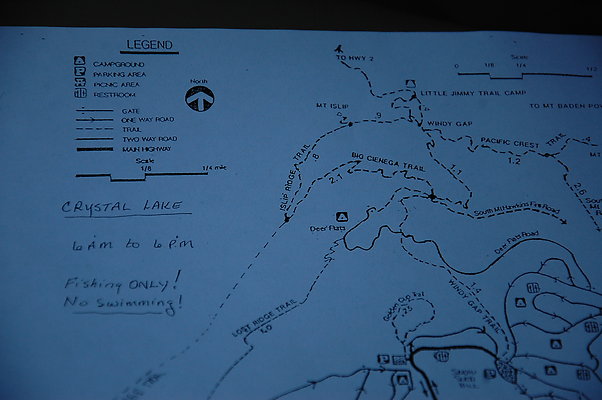 LEGEND
CAMPGROUND
PARKING AREA
PICNIC AREA
RESTROOM
GATE
ONE WAY ROAD
TRAIL
TWO WAY ROAD
MAIN HIGHWAY
Scale
0 1/8 1/4 mile
North
CRYSTAL LAKE
6 AM to 6 PM
Fishing ONLY!
No Swimming!
TO HWY 2
Scale
0 1/8 1/4 1/2
LITTLE JIMMY TRAIL CAMP
TO MT BADEN
MT ISLIP
.4
.9
WINDY GAP
PACIFIC CREST TRAIL
1.2
ISLIP RIDGE TRAIL
.8
BIG CIENEGA TRAIL
2.1
1.1
2.6
South Mt Hawkins Fire Road
Deer Flats
Deer Flats Road
1.4
WINDY GAP TRAIL
LOST RIDGE TRAIL
1.0
.25